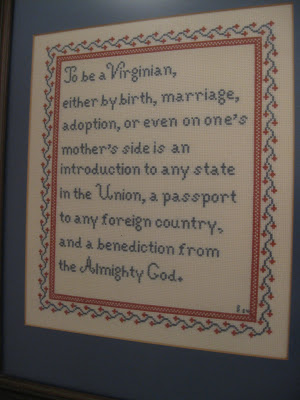 To be a Virginian,
either by birth, marriage,
adoption, or even on one's
mother's side is an
introduction to any state
in the Union, a passport
to any foreign country,
and a benediction from
the Almighty God.